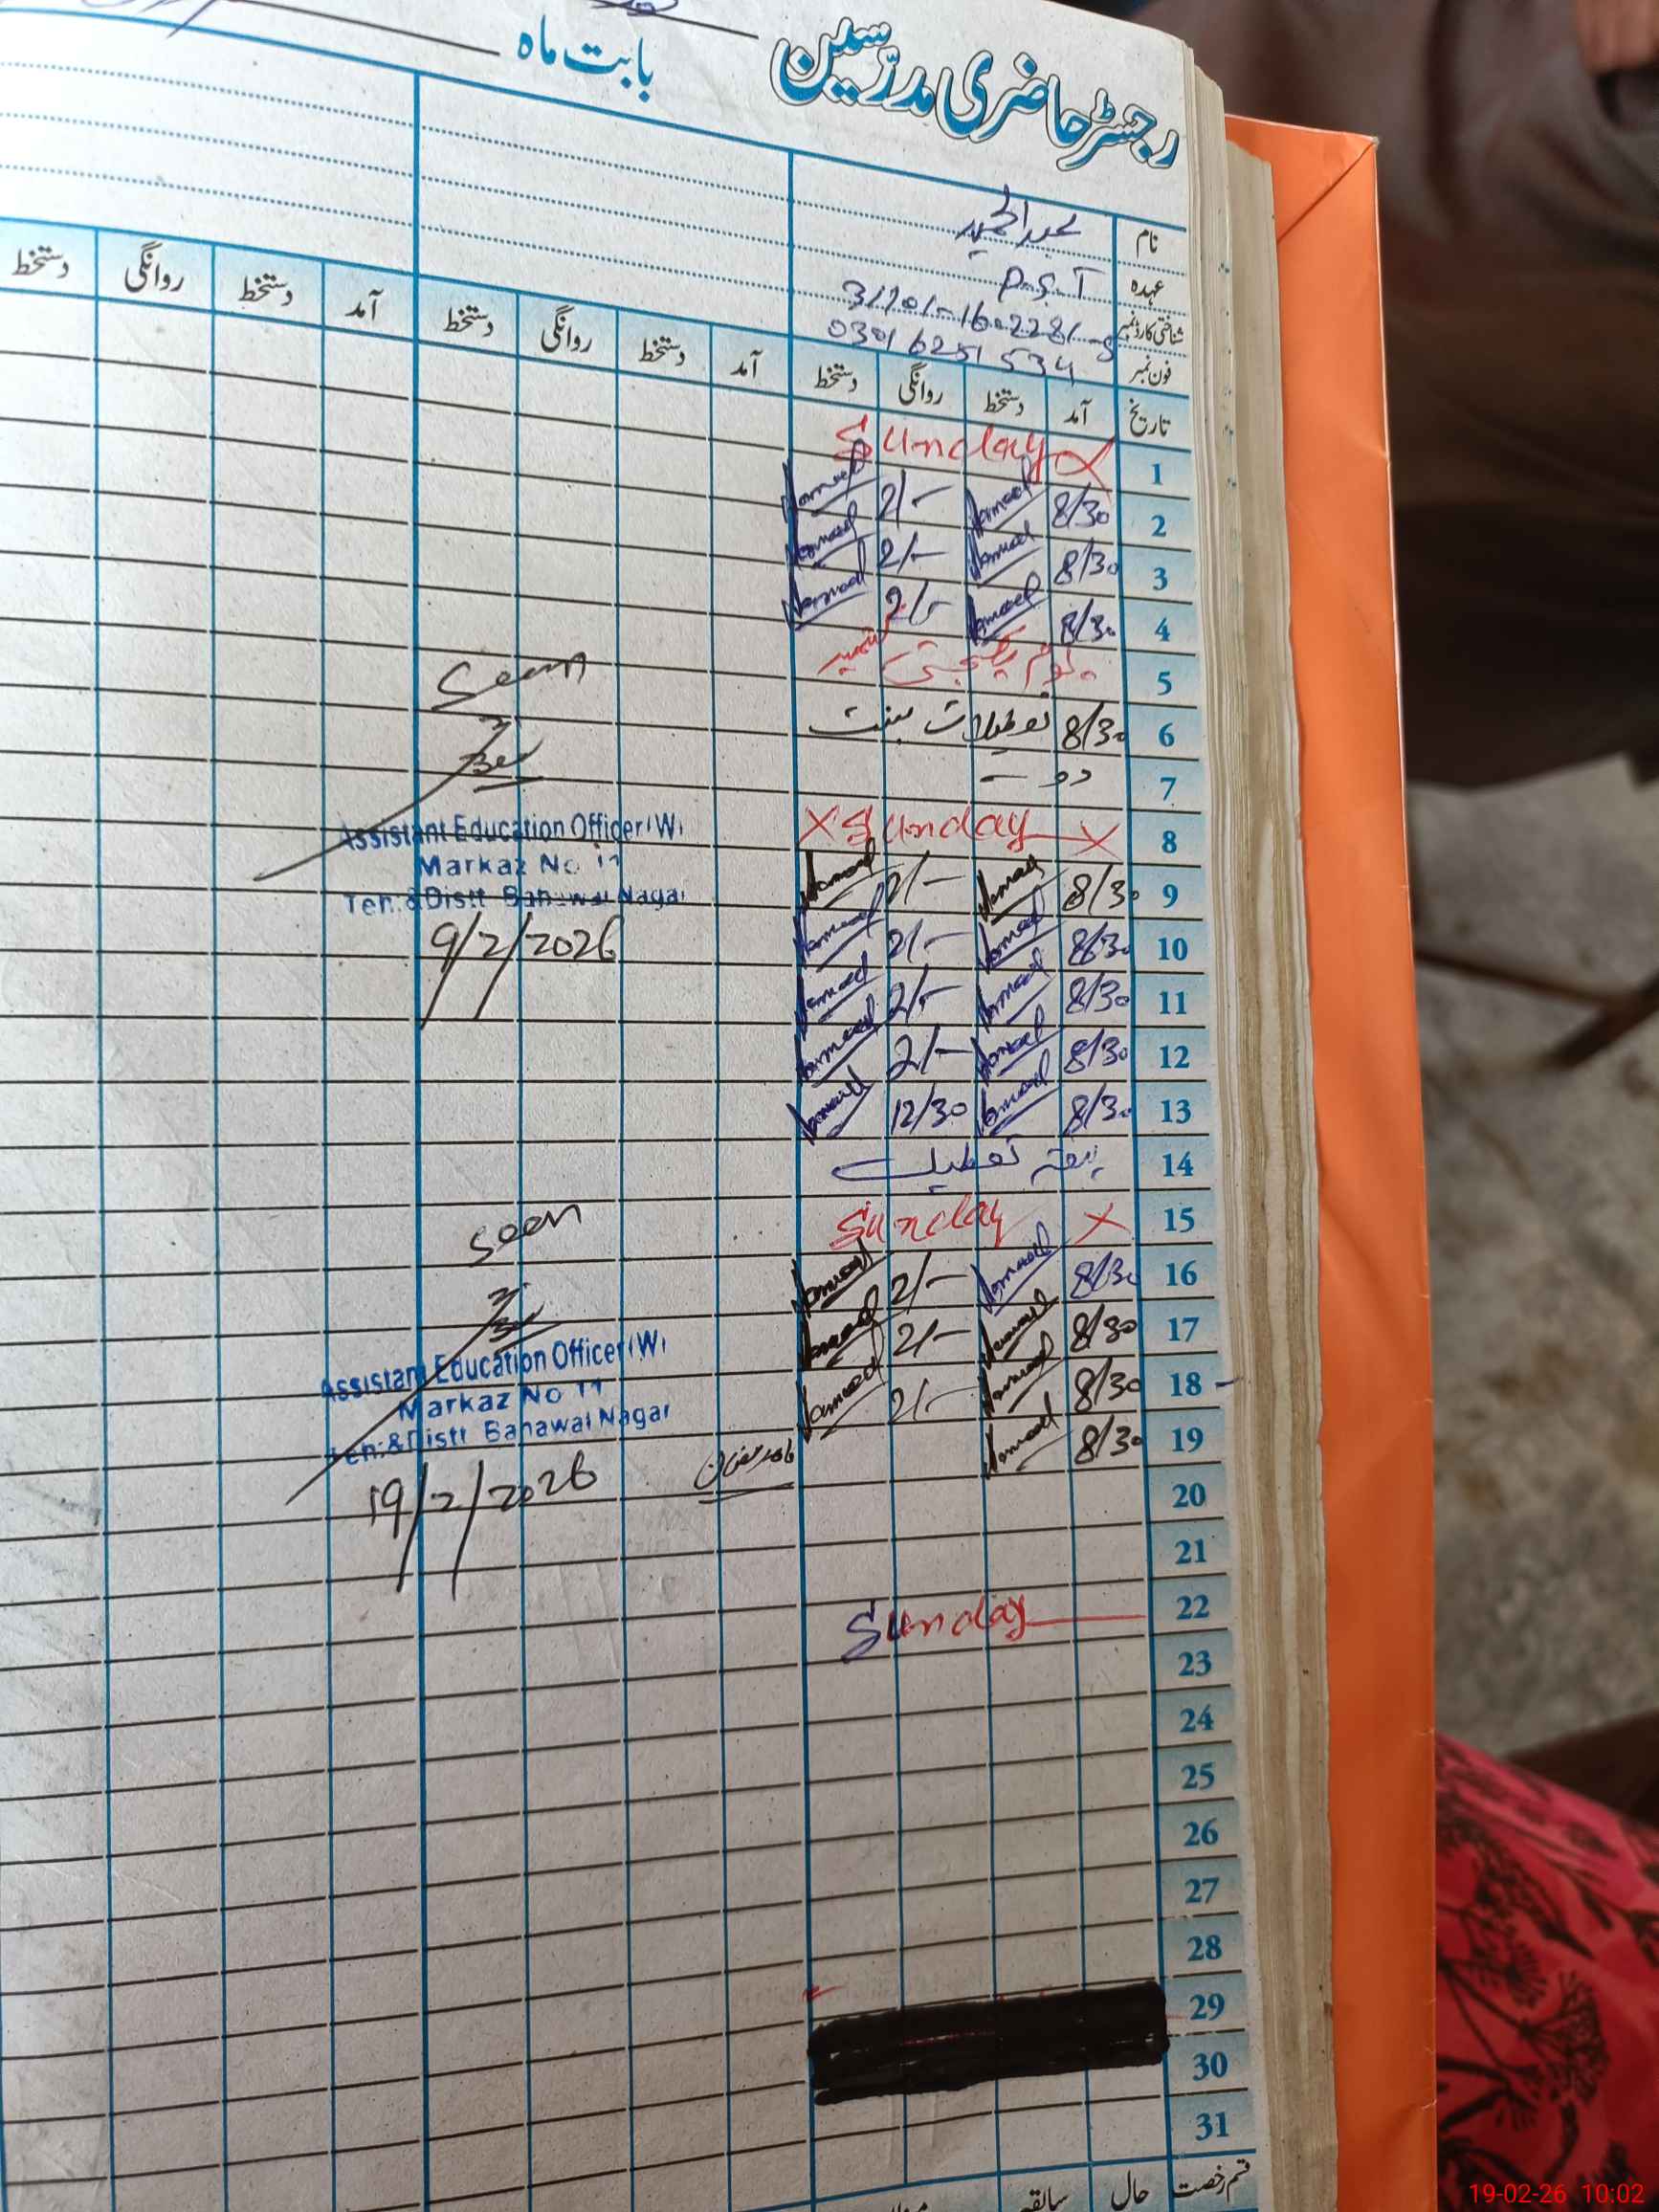 رجسٹر حاضری مدرّسین بابت ماہ
نام عبدالحمید
عہدہ P.S.T
شناختی کارڈ نمبر
فون نمبر 0301 6251534
تاریخ آمد دستخط روانگی دستخط آمد دستخط روانگی دستخط آمد دستخط روانگی دستخط
1 Sunday
2 8/30 Hameed 2/- Hameed
3 8/30 Hameed 2/- Hameed
4 8/30 Hameed 2/- Hameed
5 یوم یکجہتی کشمیر
6 8/30 تعطیلات بسنت
7 دو
8 Sunday
9 8/30 Hameed 2/- Hameed
10 8/30 Hameed 2/- Hameed
11 8/30 Hameed 2/- Hameed
12 8/30 Hameed 2/- Hameed
13 8/30 Hameed 12/30 Hameed
14 ہفتہ تعطیل
15 Sunday
16 8/30 Hameed 2/- Hameed
17 8/30 Hameed 2/- Hameed
18 8/30 Hameed 2/- Hameed
19 8/30 Hameed
20
21
22 Sunday
23
24
25
26
27
28
29
30
31
قسم رخصت حال سابقہ
Seen
Assistant Education Officer (W)
Markaz No 11
Teh: & Distt Bahawal Nagar
9/2/2026
Seen
Assistant Education Officer (W)
Markaz No 11
Teh: & Distt Bahawal Nagar
19/2/2026
19-02-26 10:02